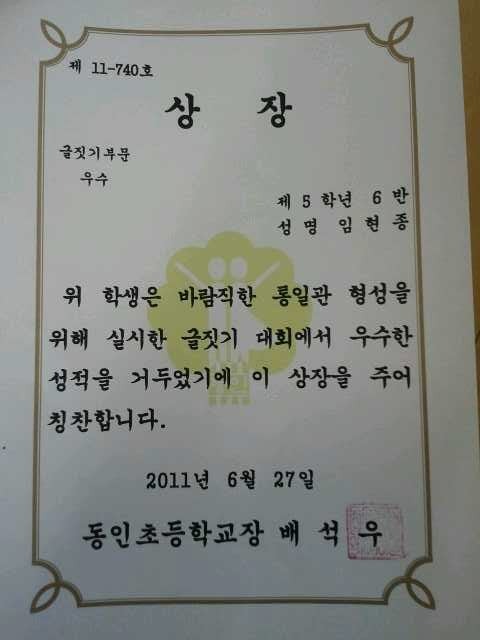 제 11-740호
상 장
글짓기부문
우수
제 5 학년 6 반
성 명 임 현 종
위 학생은 바람직한 통일관 형성을
위해 실시한 글짓기 대회에서 우수한
성적을 거두었기에 이 상장을 주어
칭찬합니다.
2011년 6월 27일
동인초등학교장 배 석 우